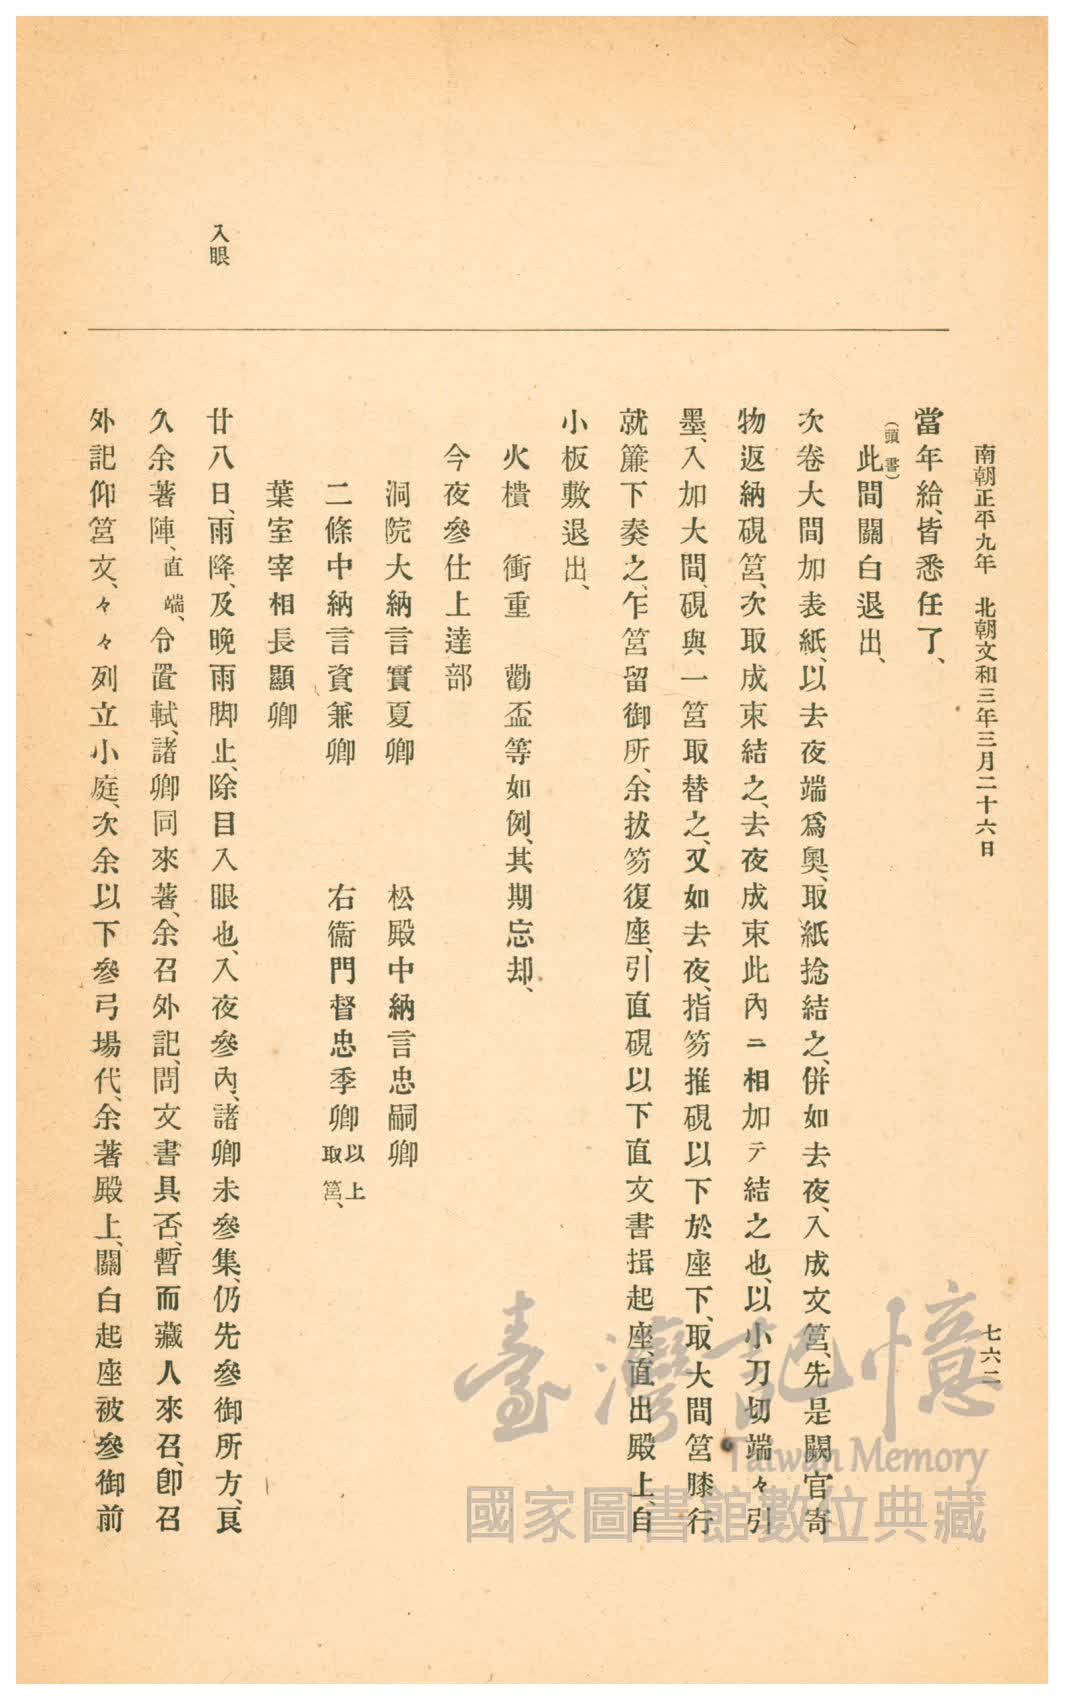 南朝正平九年　北朝文和三年三月二十六日
七六二
當年給、皆悉任了、
(頭書)
此間關白退出、
次卷大間加表紙、以去夜端爲奧、取紙捻結之、併如去夜、入成文筥、先是闕官寄
物返納硯筥、次取成束結之、去夜成束此內ニ相加テ結之也、以小刀切端々引
墨、入加大間、硯與一筥取替之、又如去夜、指笏推硯以下於座下、取大間筥膝行
就簾下奏之、乍筥留御所、余拔笏復座、引直硯以下直文書揖起座、直出殿上、自
小板敷退出、
火樻　衝重　勸盃等如例、其期忘却、
今夜參仕上達部
洞院大納言實夏卿　松殿中納言忠嗣卿
二條中納言資兼卿　右衞門督忠季卿以上取筥、
葉室宰相長顯卿
入眼
廿八日、雨降、及晚雨脚止、除目入眼也、入夜參內、諸卿未參集、仍先參御所方、良
久余著陣、直端、令置軾、諸卿同來著、余召外記、問文書具否、暫而藏人來召、卽召
外記仰筥文、々々列立小庭、次余以下參弓場代、余著殿上、關白起座被參御前
臺灣記憶
Taiwan Memory
國家圖書館數位典藏